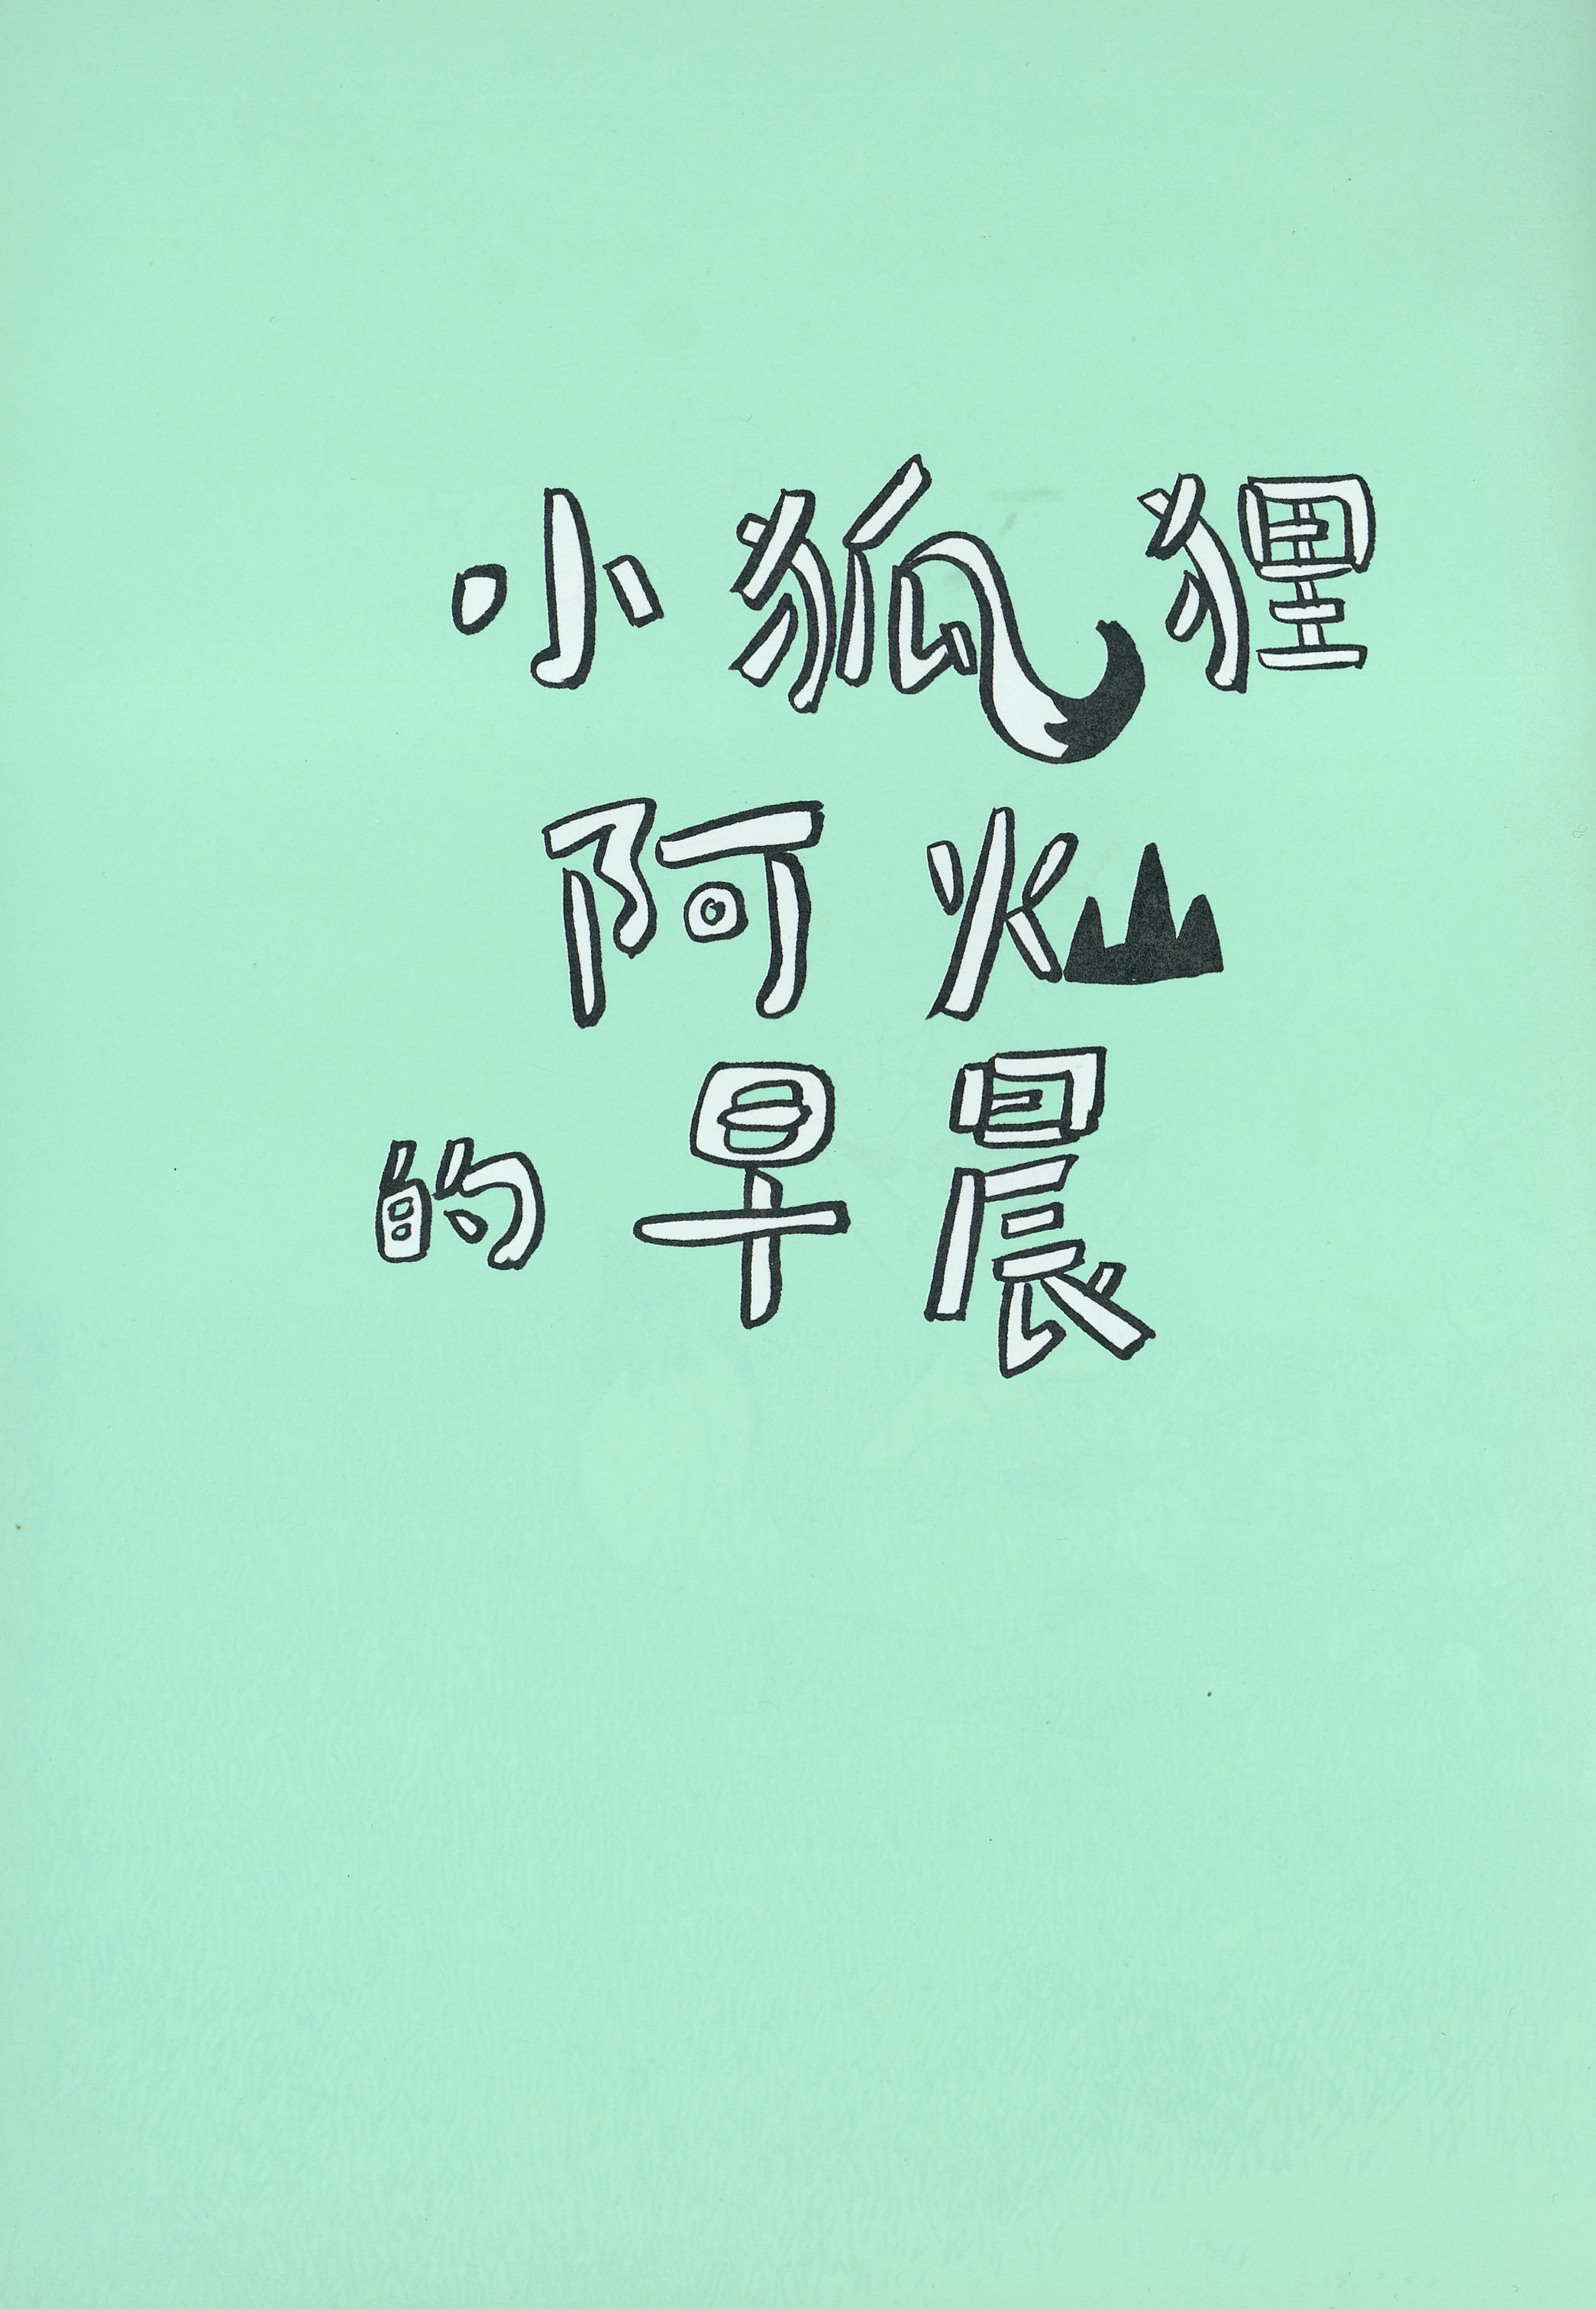 小狐狸
阿灿
的早晨